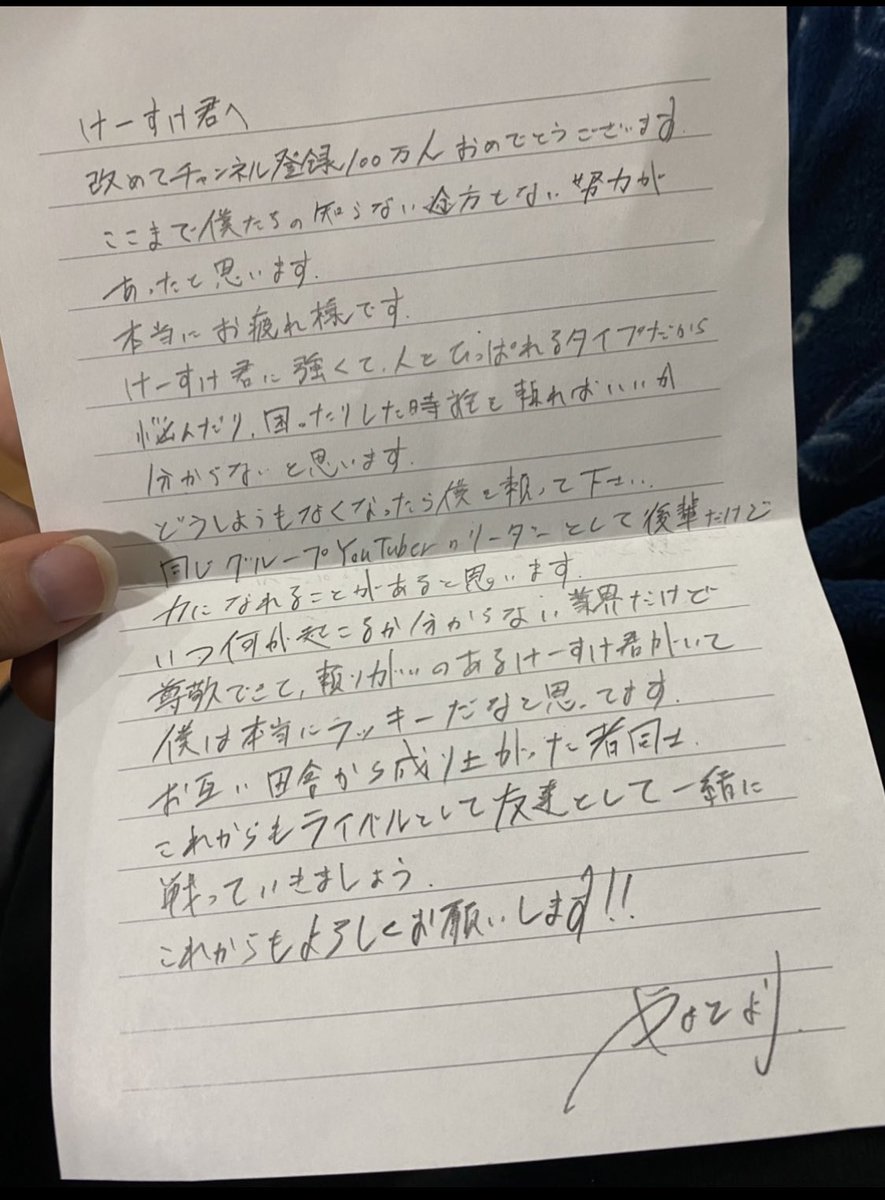 けーすけ君へ
改めてチャンネル登録100万人おめでとうございます.
ここまで僕たちの知らない途方もない努力が
あったと思います.
本当にお疲れ様です.
けーすけ君は強くて、人をひっぱれるタイプだから
悩んだり、困ったりした時誰を頼ればいいか
分からないと思います.
どうしようもなくなったら僕を頼って下さい.
同じグループYouTuberのリーダーとして後輩だけど
力になれることがあると思います.
いつ何が起こるか分からない業界だけど
尊敬できて、頼りがいのあるけーすけ君がいて
僕は本当にラッキーだなと思ってます.
お互い田舎から成り上がった者同士.
これからもライバルとして友達として一緒に
戦っていきましょう.
これからもよろしくお願いします!!
より